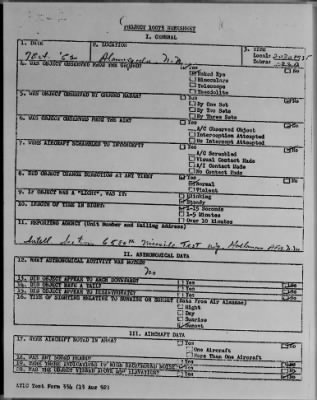 PROJECT 10073 WORKSHEET
I. GENERAL
1. DATE
2. LOCATION
3. TIME
7 Oct '52
Alamogordo N.M.
Local:
Zebra:
4. WAS OBJECT OBSERVED FROM THE GROUND?
Yes
No
Naked Eye
Binoculars
Telescope
Theodolite
5. WAS OBJECT OBSERVED BY GROUND RADAR?
Yes
No
By One Set
By Two Sets
By Three Sets
6. WAS OBJECT OBSERVED FROM THE AIR?
Yes
No
A/C Observed Object
Interception Attempted
No Intercept Attempted
7. WERE AIRCRAFT SCRAMBLED TO INTERCEPT?
Yes
No
A/C Scrambled
Visual Contact Made
A/C Contact Made
No Contact Made
8. DID OBJECT CHANGE DIRECTION AT ANY TIME?
Yes
No
Normal
Violent
9. IF OBJECT WAS A "LIGHT", WAS IT:
Blinking
Steady
10. LENGTH OF TIME IN SIGHT:
1-15 Seconds
1-5 Minutes
Over 10 Minutes
11. REPORTING AGENCY (Unit Number and Mailing Address)
6580th Missile Test Wing Holloman AFB N.M.
II. ASTRONOMICAL DATA
12. WHAT ASTRONOMICAL ACTIVITY WAS NOTED?
13. DID OBJECT APPEAR TO ARCH DOWNWARD?
Yes
No
14. DID OBJECT HAVE A TAIL?
Yes
No
15. DID OBJECT APPEAR TO DISINTEGRATE?
Yes
No
16. TIME OF SIGHTING RELATIVE TO SUNRISE OR SUNSET (Data From Air Almanac)
Night
Day
Sunrise
Sunset
III. AIRCRAFT DATA
17. WERE AIRCRAFT NOTED IN AREA?
Yes
No
One Aircraft
More Than One Aircraft
18. WAS ANY SOUND HEARD?
Yes
No
19. WERE THERE INDICATIONS OF HIGH BACKGROUND NOISE?
Yes
No
20. WAS THE OBJECT VISIBLE ABOVE ELEVATION?
Yes
No
ATIC Test Form 334 (15 Aug 52)